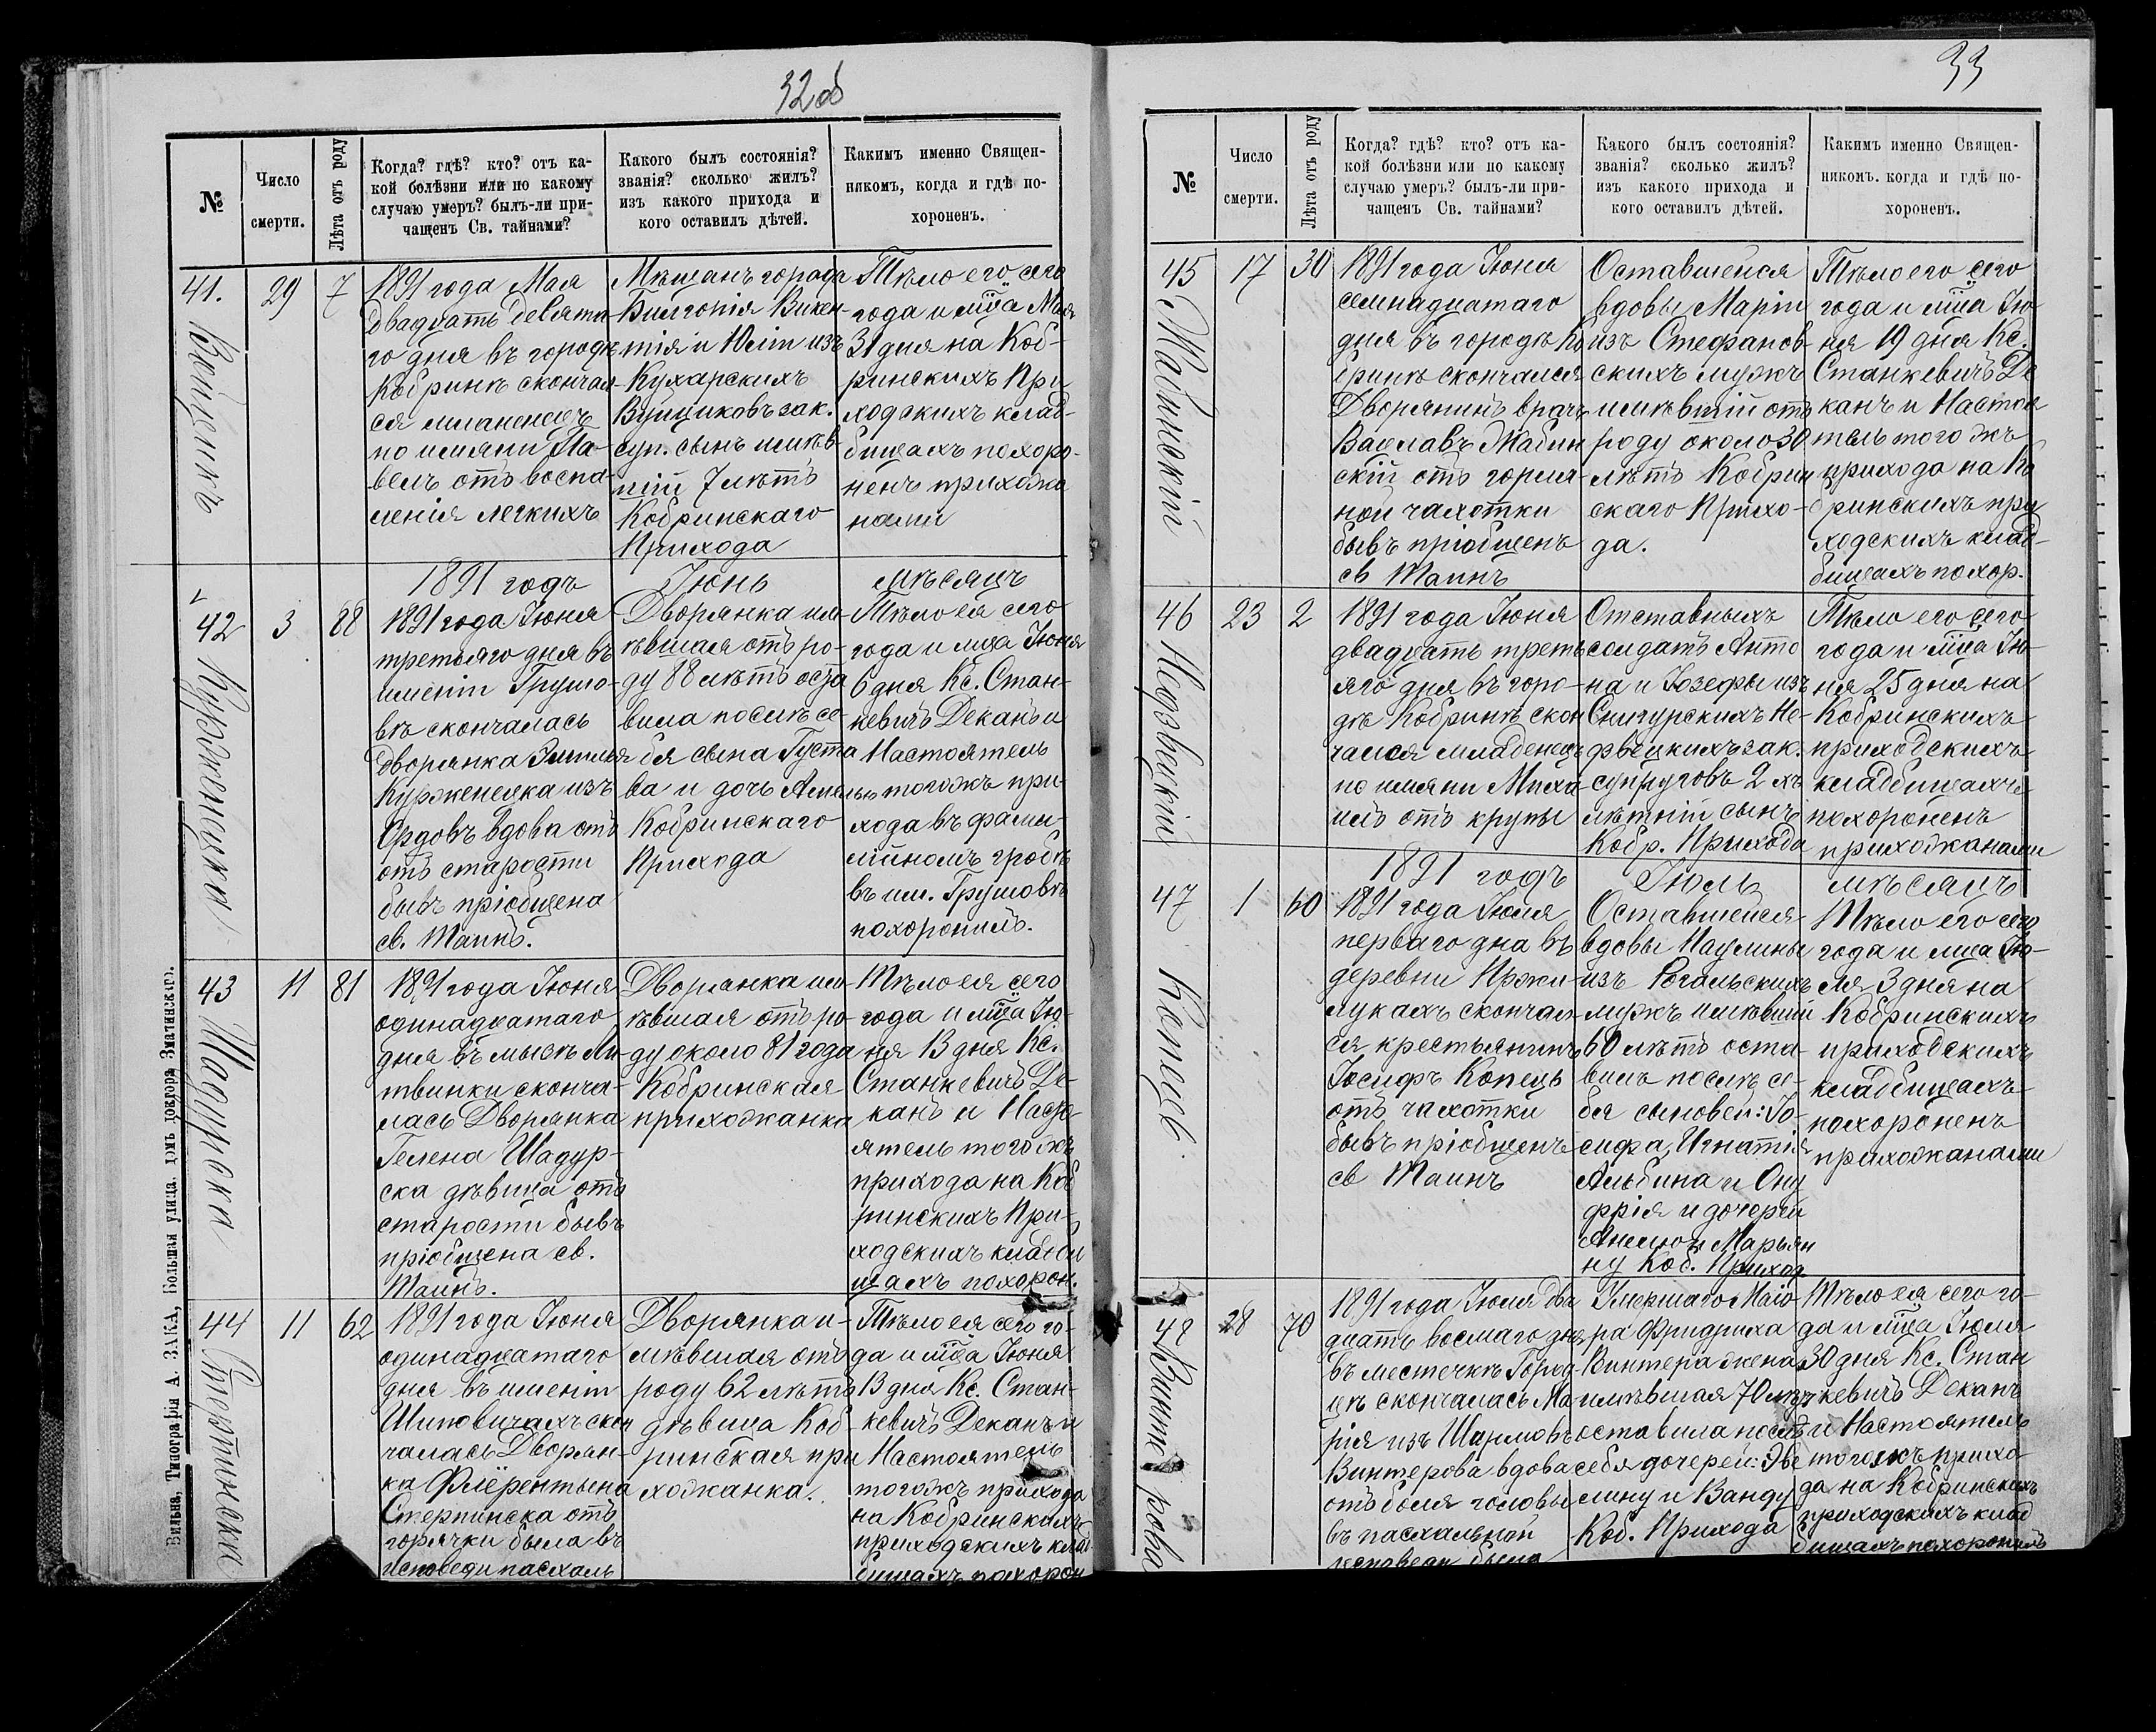 32об
№
Число
смерти.
Лѣта отъ роду
Когда? гдѣ? кто? отъ ка-
кой болѣзни или по какому
случаю умеръ? былъ-ли при-
чащенъ Св. тайнами?
Какого былъ состоянія?
званія? сколько жилъ?
изъ какого прихода и
кого оставилъ дѣтей.
Какимъ именно Священ-
никомъ, когда и гдѣ по-
хороненъ.
41.
29
7
1891 года Мая
двадцать девята-
го дня въ городѣ
Кобринѣ скончал-
ся младенецъ
по имяни Па-
велъ отъ воспа-
ленія легкихъ
Мѣщанъ города
Викен-
тія и Юліи изъ
Кухарскихъ
зак.
суп. сынъ имѣв-
шій 7 лѣтъ
Кобринскаго
Прихода
Тѣло его сего
года и мца Мая
31 дня на Коб-
ринскихъ При
ходскихъ клад-
бищахъ похоро-
ненъ прихожа
нами
1891 годъ Іюнь мѣсяцъ
42
Курженецка
3
88
1891 года Іюня
третьяго дня въ
имѣніи Грушо-
вкѣ скончалась
дворянка Эмилья
Курженецка изъ
Ордовъ вдова отъ
отъ старости
бывъ пріобщена
св. Таинъ.
Дворянка им-
ѣвшая отъ ро-
ду 88 лѣтъ оста
вила послѣ се-
бя сына Густа
ва и дочь Амелью
Кобринскаго
Прихода
Тѣло ея сего
года и мца Іюня
6 дня Кс. Стан-
кевичъ Деканъ и
Настоятель
тогожъ при-
хода въ фами-
лійномъ гробѣ
въ им. Грушовкѣ
похоронилъ.
43
Шадурска
11
81
1891 года Іюня
одинадцатаго
дня въ мызѣ Ли-
твинки сконча-
лась Дворянка
Гелена Шадур-
ска дѣвица отъ
старости бывъ
пріобщена св.
Таинъ.
Дворянка им-
ѣвшая отъ ро-
ду около 81 года
Кобринская
прихожанка
Тѣло ея сего
года и мца Ію-
ня 13 дня Кс.
Станкевичъ Де-
канъ и Насто-
ятель тогожъ
прихода на Коб
ринскихъ При-
ходскихъ кладби
щахъ похорон.
44
11
62
1891 года Іюня
одинадцатаго
дня въ имѣніи
Шиповичахъ скон
чалась Дворян-
ка Флёрентына
Стерпинска отъ
горячки была въ
исповеди пасхаль
Дворянка и-
мѣвшая отъ
роду 62 лѣтъ
дѣвица Коб-
ринская при
хожанка.
Тѣло ея сего го-
да и мца Іюня
13 дня Кс. Стан-
кевичъ Деканъ и
Настоятель
тогожъ прихода
на Кобринскихъ
приходскихъ клад
бищахъ похорон
Вильна, Типографія А. ЗАКА, Большая улица, домъ доктора Знатинскаго.
33
№
Число
смерти.
Лѣта отъ роду
Когда? гдѣ? кто? отъ ка-
кой болѣзни или по какому
случаю умеръ? былъ-ли при-
чащенъ Св. тайнами?
Какого былъ состоянія?
званія? сколько жилъ?
изъ какого прихода и
кого оставилъ дѣтей.
Какимъ именно Священ-
никомъ. когда и гдѣ по-
хороненъ.
45
Жабинскій
17
30
1891 года Іюня
семнадцатаго
дня въ городѣ Ко
бринѣ скончался
Дворянинъ врачъ
Вацлавъ Жабин
скій отъ горля-
ной чахотки
бывъ пріобщенъ
св Таинъ
Оставшейся
вдовы Маріи
изъ Стефанов-
скихъ мужъ
имѣвшій отъ
роду около 30
лѣтъ Кобрин
скаго Прихо-
да.
Тѣло его сего
года и мца Ію
ня 19 дня Кс.
Станкевичъ Де
канъ и Настоя
тель тогожъ
прихода на Ко
бринскихъ при
ходскихъ клад-
бищахъ похор.
46
23
2
1891 года Іюня
двадцать треть
яго дня въ горо-
дѣ Кобринѣ скон
чался младенецъ
по имяни Миха
илъ отъ крупы
Отставныхъ
солдатъ Анто
на и Іозефы изъ
Снигурскихъ Не-
зак.
супруговъ 2 хъ
лѣтній сынъ
Кобр. Прихода
Тѣло его сего
года и мца Ію-
ня 25 дня на
Кобринскихъ
приходскихъ
кладбищахъ
похороненъ
прихожанами
1891 годъ Іюль мѣсяцъ
47
Копецъ.
1
60
1891 года Іюля
перваго дна въ
деревни Пржи-
лукахъ скончал
ся крестьянинъ
Іосифъ Копецъ
отъ чахотки
бывъ пріобщенъ
св Таинъ
Оставшейся
вдовы Паулины
изъ Рогальскихъ
мужъ имѣвшій
60 лѣтъ оста-
вилъ послѣ се-
бя сыновей: Іо-
сифа, Игнатія
Альбина и Ону
фрія и дочерей
Анелю и Марьян
ну Коб. Приход
Тѣло его сего
года и мца Ію-
ля 3 дня на
Кобринскихъ
приходскихъ
кладбищахъ
похороненъ
прихожанами
48
Винтерова
28
70
1891 года Іюля два
дцать восмаго дня
въ местечкѣ Горо
цѣ скончалась Ма
рія изъ Шармовъ
Винтерова вдова
отъ боля головы
въ пасхальной
исповеди была
Умершаго Маіо
ра Фридриха
Винтера жена
имѣвшая 70 лѣтъ
оставила послѣ
себя дочерей: Эве
лину и Ванду
Коб. Прихода
Тѣло ея сего го-
да и мца Іюля
30 дня Кс. Стан
кевичъ Деканъ
и Настоятель
тогожъ прихо
да на Кобринскихъ
приходскихъ клад
бищахъ похоронилъ